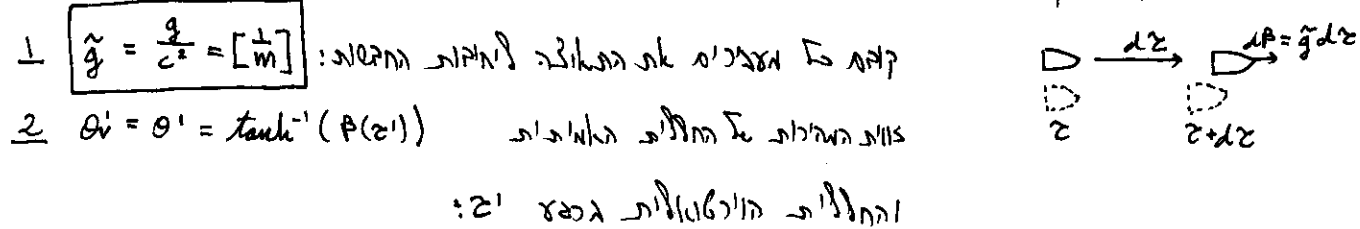 1 g̃ = g/c² = [1/m] קודם כל מעבירים את התאוצה ליחידות החדשות:
dτ dβ = g̃dτ
2 θv' = θ' = tanh⁻¹(β(τ')) זווית המהירות של החללית האמיתית
τ τ+dτ
והחללית הוירטואלית ברגע τ':